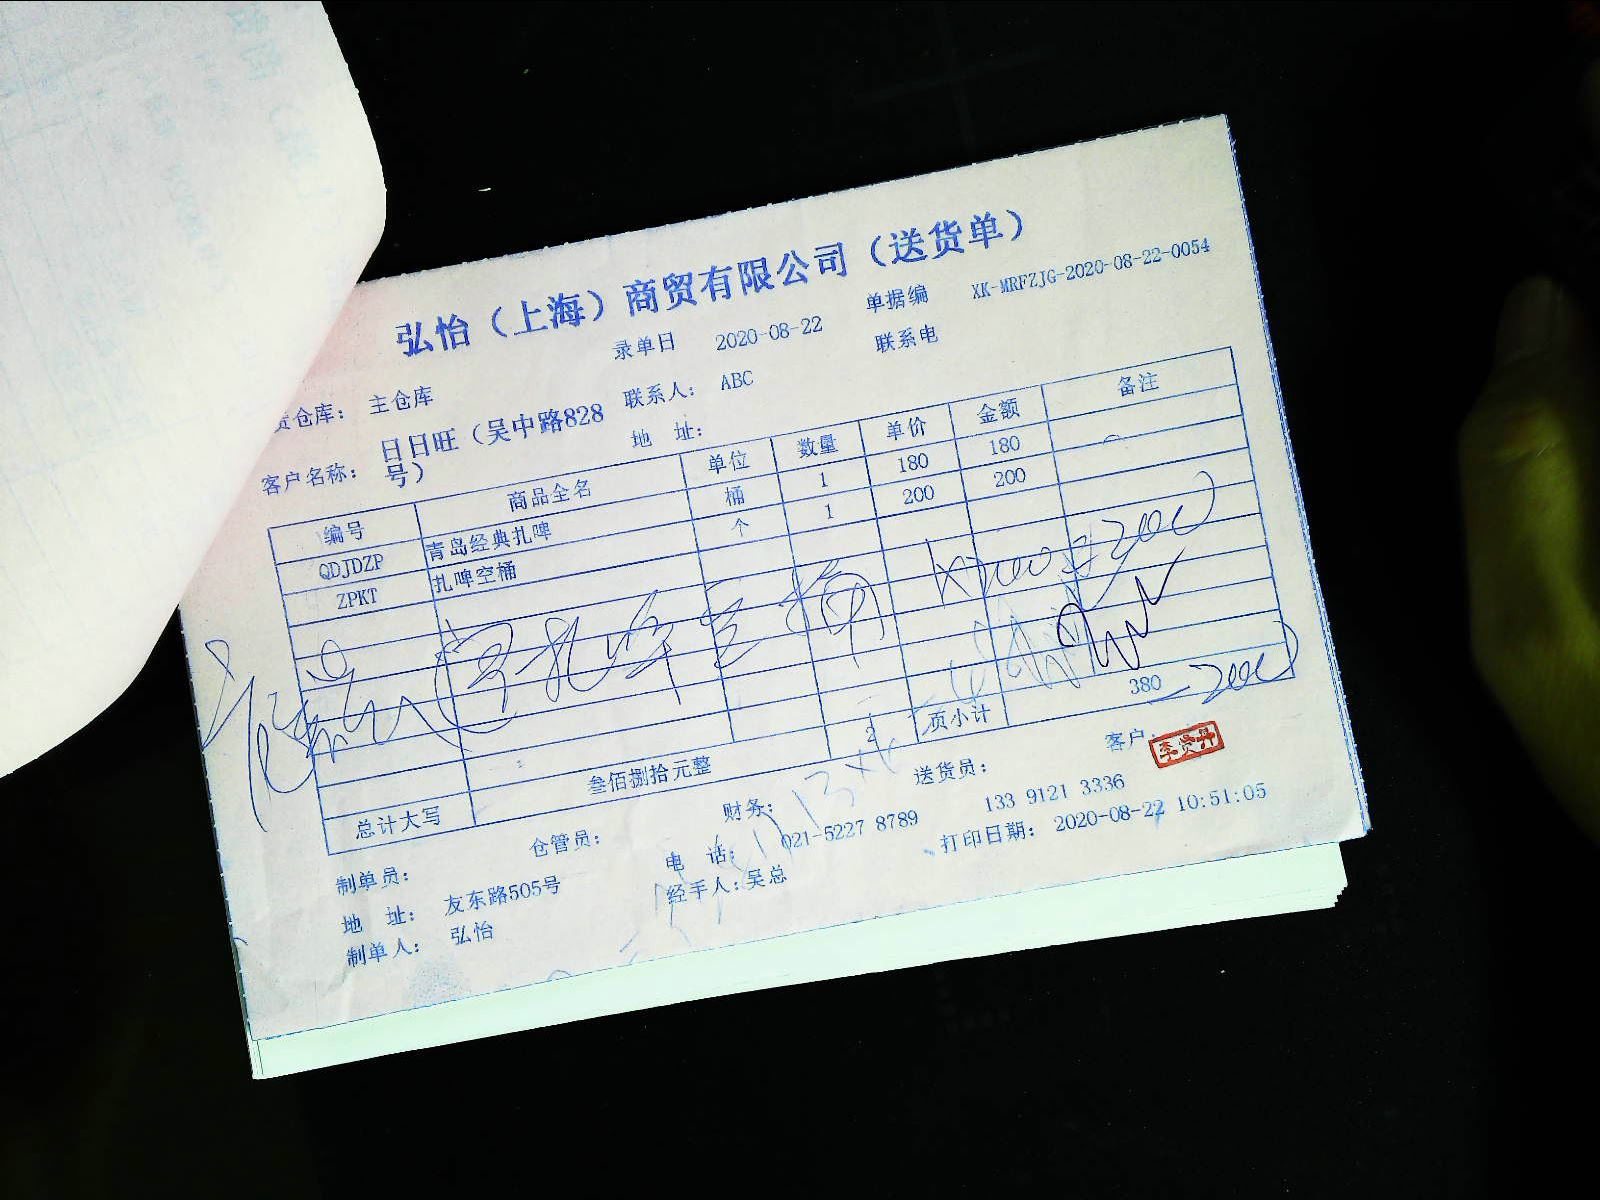 弘怡（上海）商贸有限公司（送货单）
录单日 2020-08-22 单据编 XK-MRFZJG-2020-08-22-0054
货仓库： 主仓库 联系人： ABC 联系电
客户名称： 日日旺（吴中路828号） 地 址：
编号 商品全名 单位 数量 单价 金额 备注
QDJDZP 青岛经典扎啤 桶 1 180 180
ZPKT 扎啤空桶 个 1 200 200
2 页小计 380 -200
总计大写 叁佰捌拾元整
制单员： 仓管员： 财务： 送货员： 客户： 李贤丹
地 址： 友东路505号 电 话： 021-5227 8789 133 9121 3336
制单人： 弘怡 经手人： 吴总 打印日期： 2020-08-22 10:51:05